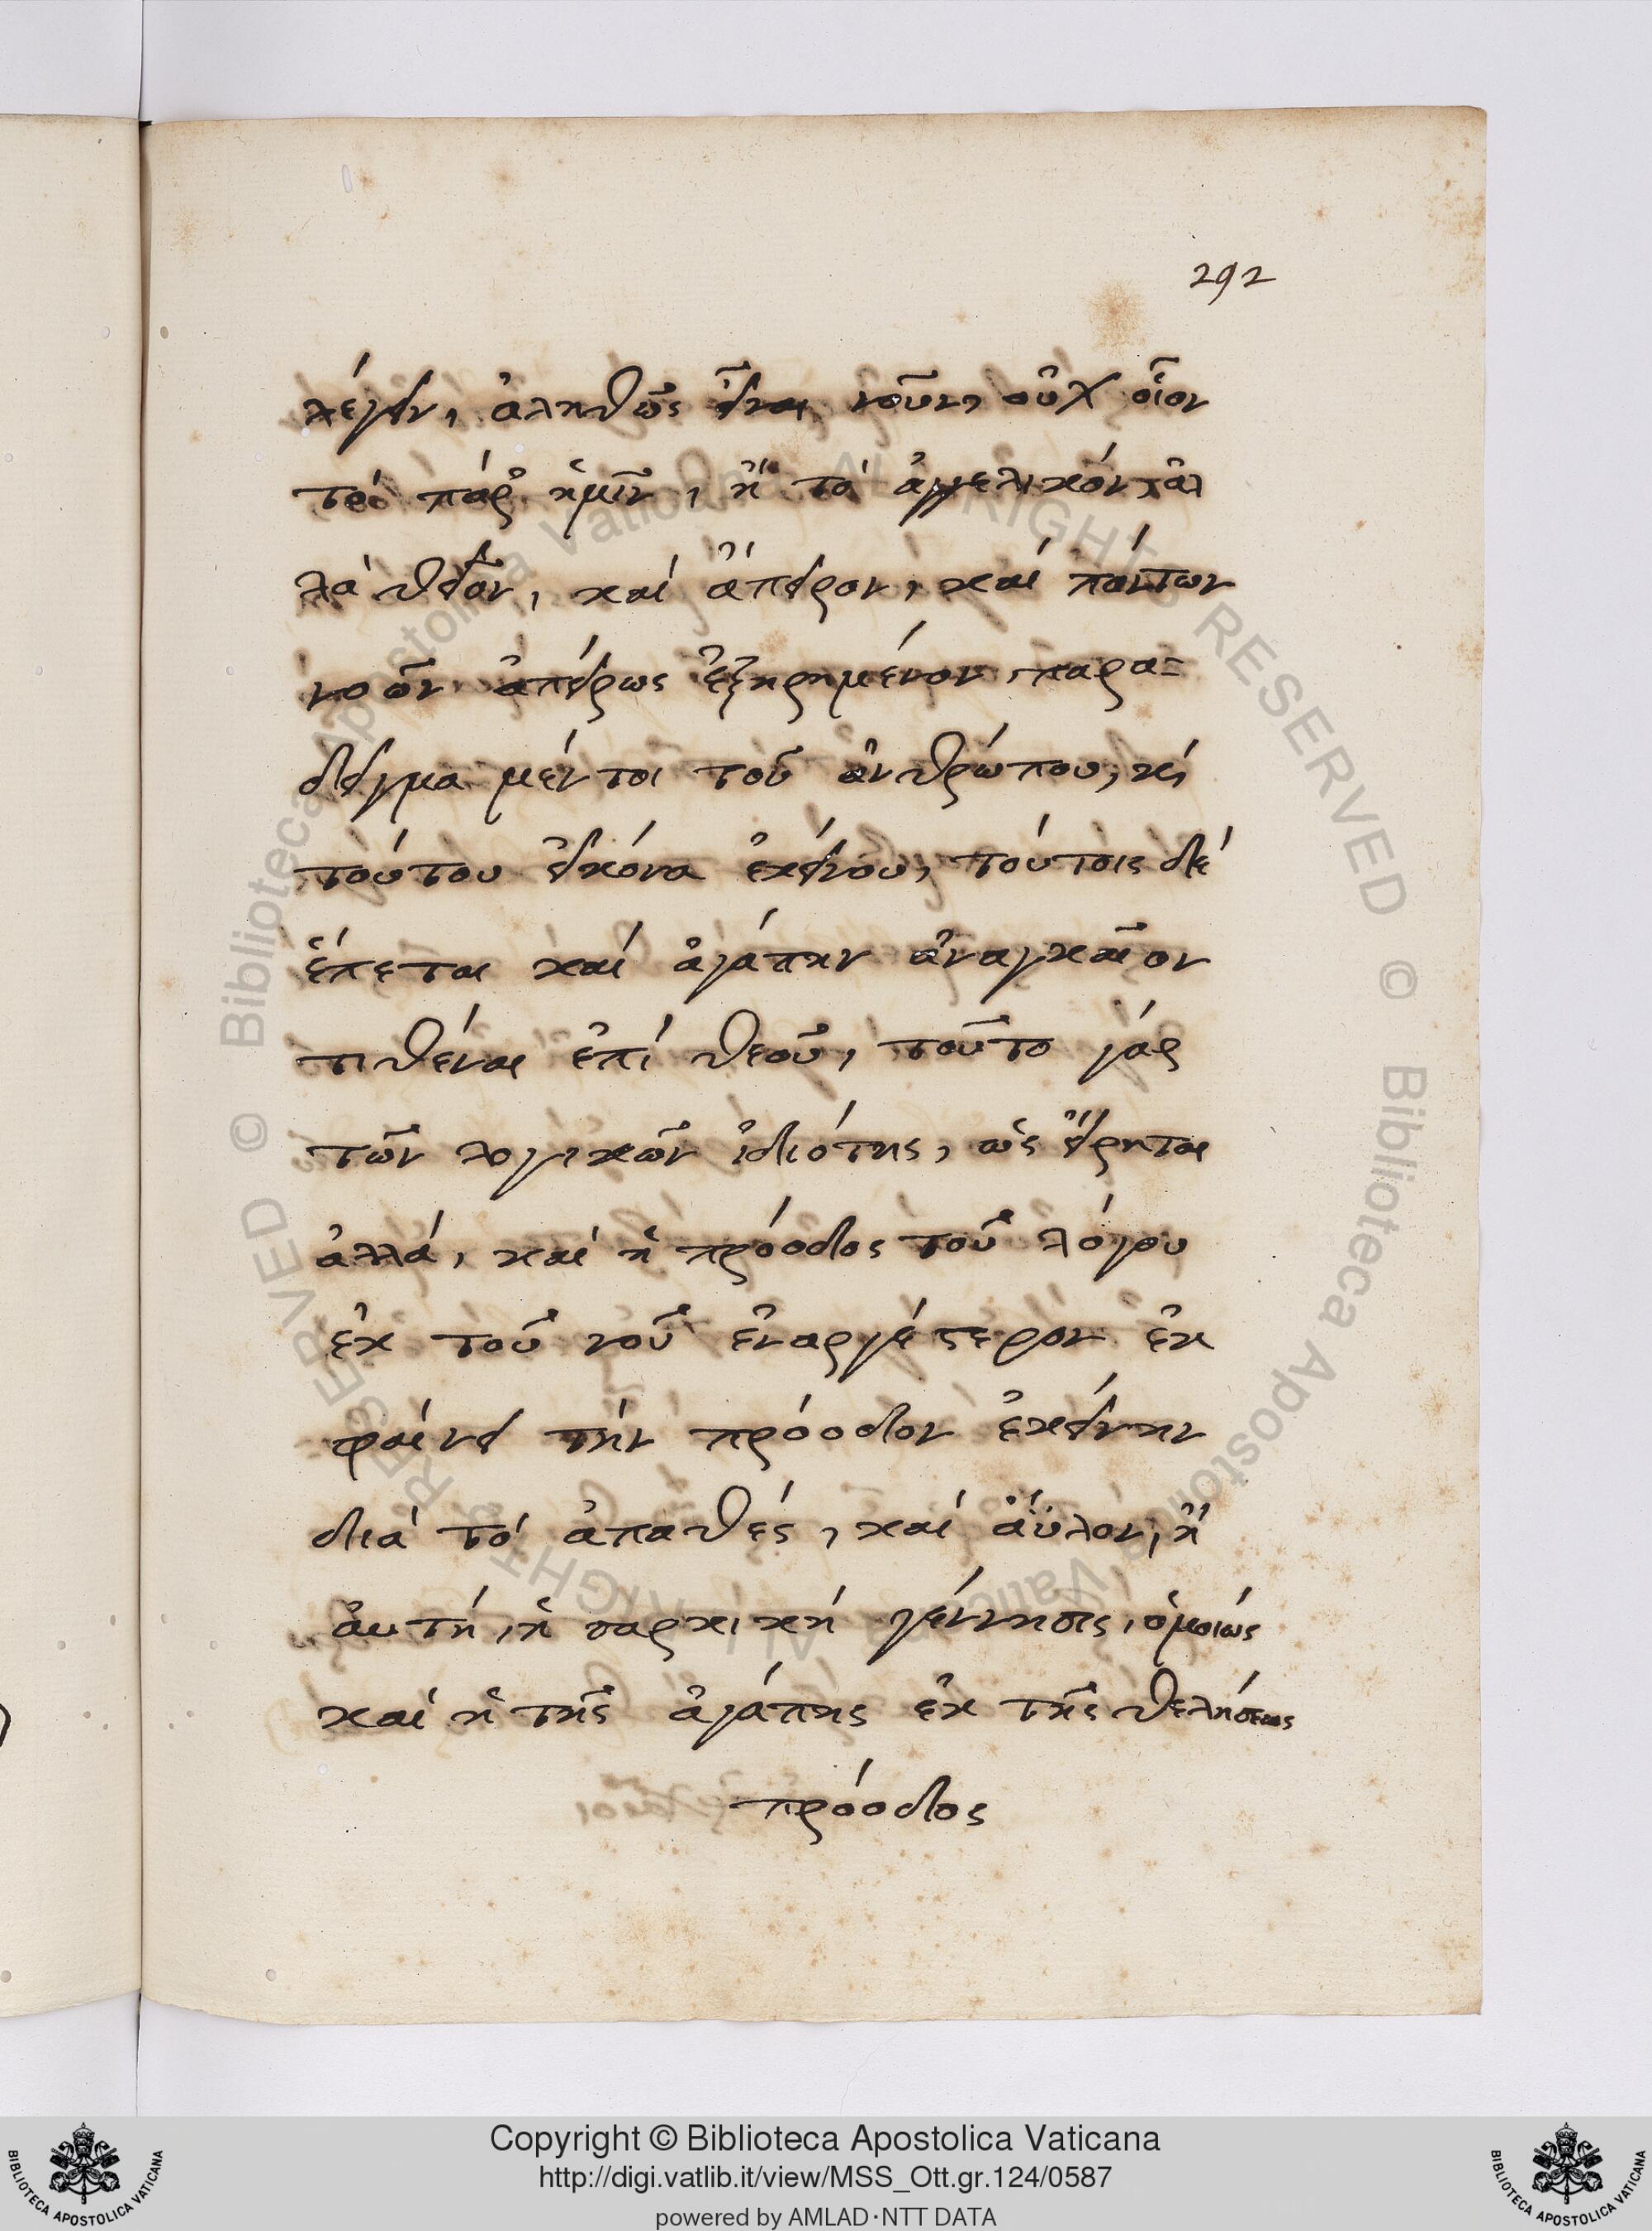 292
λέγειν, ἀληθῶς εἶναι νοῦν, οὐχ οἷον
τὸ παρ' ἡμῖν, ἢ τὸ ἀγγελικόν, ἀλ
λὰ θεῖον, καὶ ἄπειρον, καὶ πάντων
νοῶν ἀπείρως ἐξηρημένον, παρα=
δειγμα μέν τοι τοῦ ἀνθρώπου, κὶ
τούτου εἰκόνα ἐκείνου, τούτοις δὲ
ἕπεται καὶ ἀγάπην ἀναγκαῖον
τιθέναι ἐπὶ θεοῦ, τοῦτο γάρ
τῶν λογικῶν ἰδιότης, ὡς εἴρηται
ἀλλά, καὶ ἡ πρόοδος τοῦ λόγου
ἐκ τοῦ νοῦ ἐναργέστερον ἐκ
φαίνει τὴν πρόοδον ἐκείνην
διὰ τὸ ἀπαθές, καὶ ἄϋλον, ἢ
ἀυτή, ἡ σαρκικὴ γέννησις, ὁμοιώς
καὶ ἡ τῆς ἀγάπης ἐκ τῆς θελήσεως
πρόοδος
Copyright © Biblioteca Apostolica Vaticana
http://digi.vatlib.it/view/MSS_Ott.gr.124/0587
powered by AMLAD·NTT DATA
BIBLIOTECA APOSTOLICA VATICANA
BIBLIOTECA APOSTOLICA VATICANA
© Biblioteca Apostolica Vaticana ALL RIGHTS RESERVED
© Biblioteca Apostolica Vaticana ALL RIGHTS RESERVED